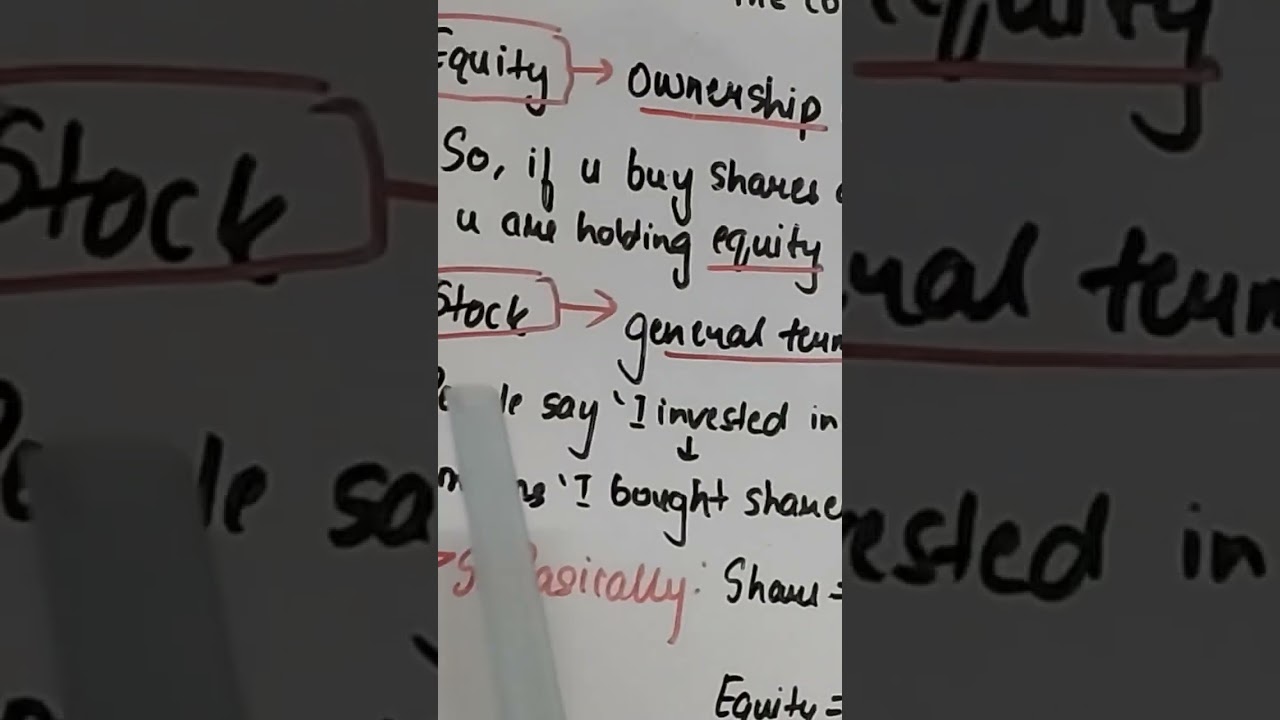 Equity → Ownership
So, if u buy shares
u are holding equity
Stock → general term
say 'I invested in
↓
'I bought share
Basically: Shares =
Equity =